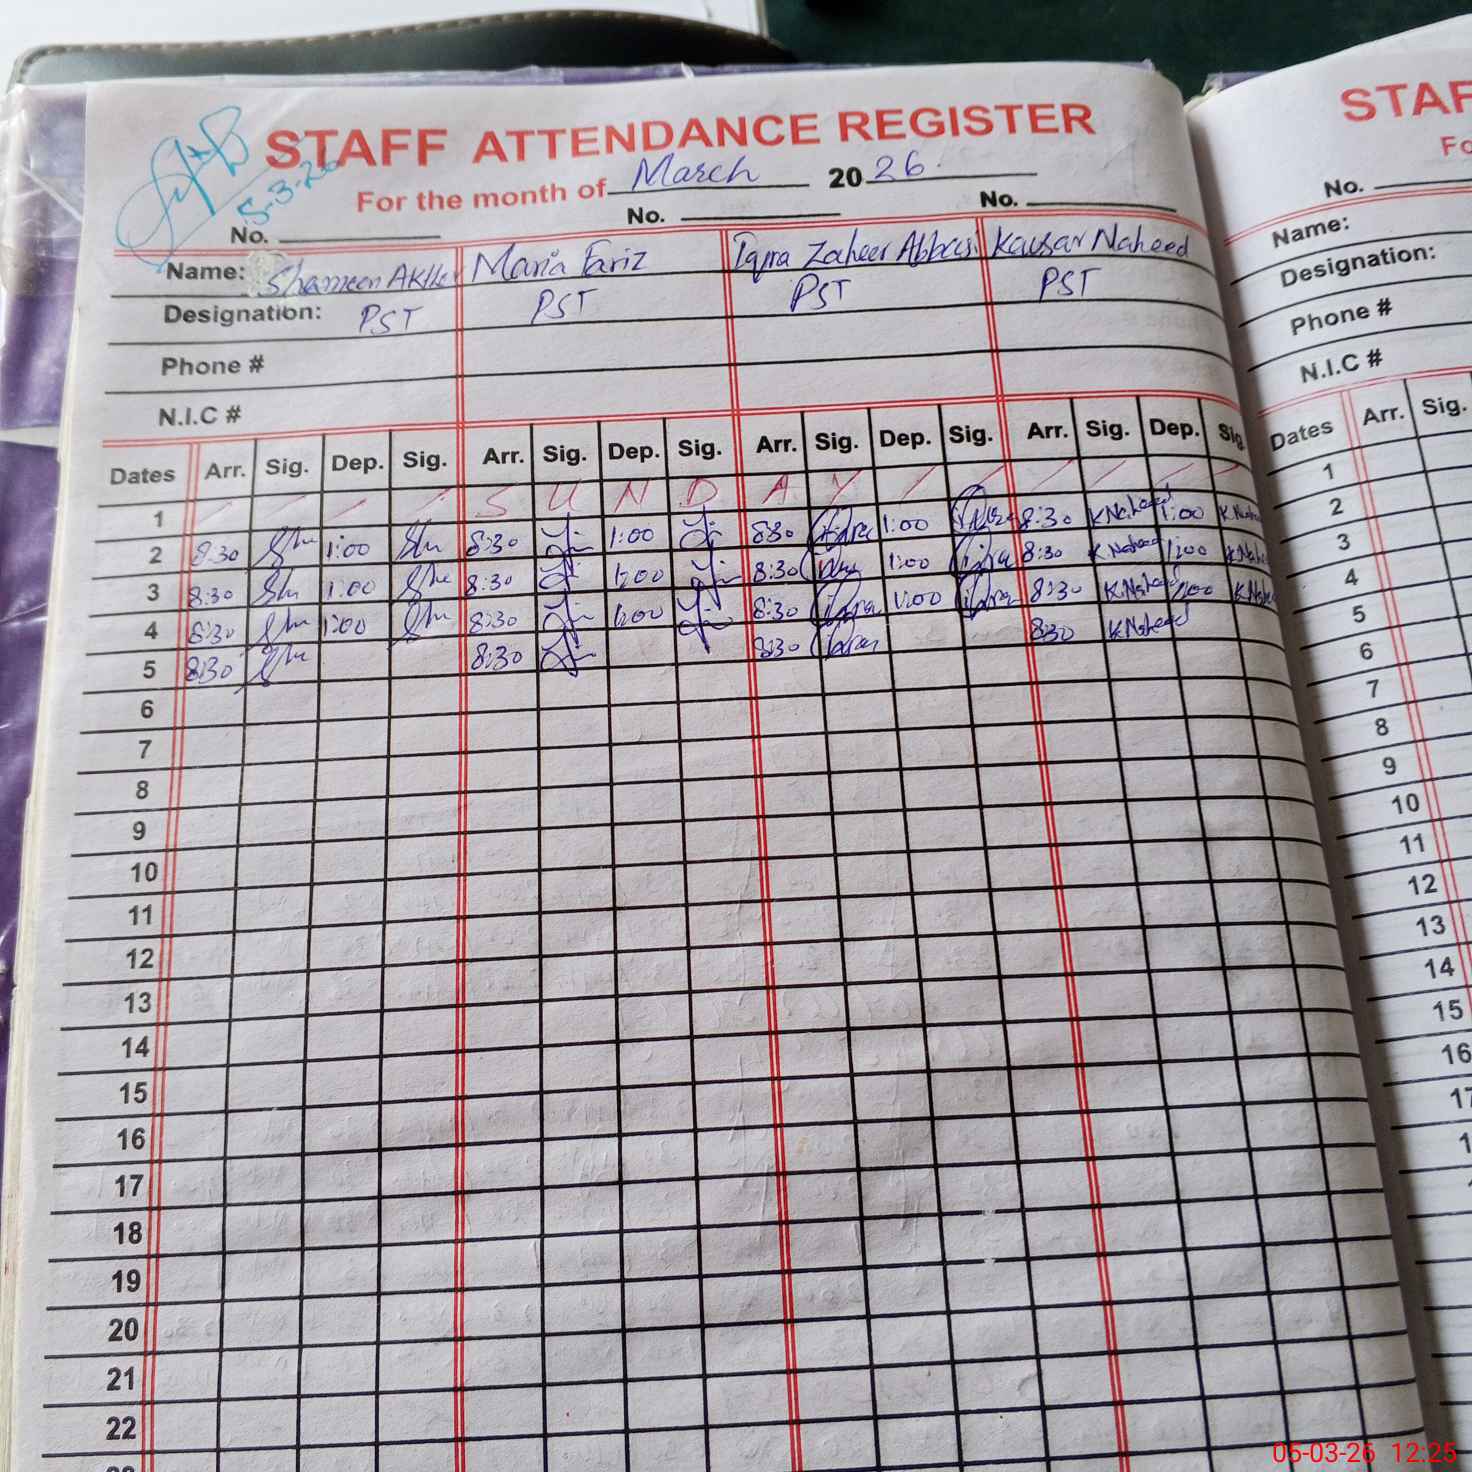 STAFF ATTENDANCE REGISTER
5-3-26
For the month of March 2026
No. No. No.
Name: Shameen Akhter Maria Fariz Iqra Zaheer Abbasi Kausar Naheed
Designation: PST PST PST PST
Phone #
N.I.C #
Dates Arr. Sig. Dep. Sig. Arr. Sig. Dep. Sig. Arr. Sig. Dep. Sig. Arr. Sig. Dep. Sig.
1 S U N D A Y
2 8:30 1:00 8:30 1:00 8:30 1:00 8:30 K Naheed 1:00
3 8:30 1:00 8:30 1:00 8:30 1:00 8:30 K Naheed 1:00
4 8:30 1:00 8:30 1:00 8:30 1:00 8:30 K Naheed 1:00
5 8:30 8:30 8:30 8:30 K Naheed
6
7
8
9
10
11
12
13
14
15
16
17
18
19
20
21
22
STAF
Fo
No.
Name:
Designation:
Phone #
N.I.C #
Dates Arr. Sig.
1
2
3
4
5
6
7
8
9
10
11
12
13
14
15
16
17
05-03-26 12:25